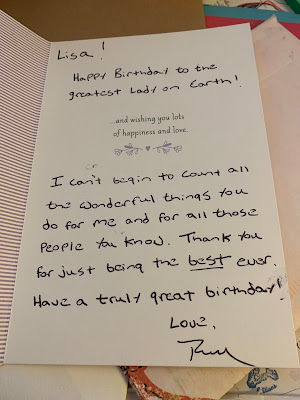 Lisa!
Happy Birthday to the
greatest Lady on Earth!
...and wishing you lots
of happiness and love.
I can't begin to count all
the wonderful things you
do for me and for all those
people you know. Thank you
for just being the best ever.
Have a truly great birthday!
Love,